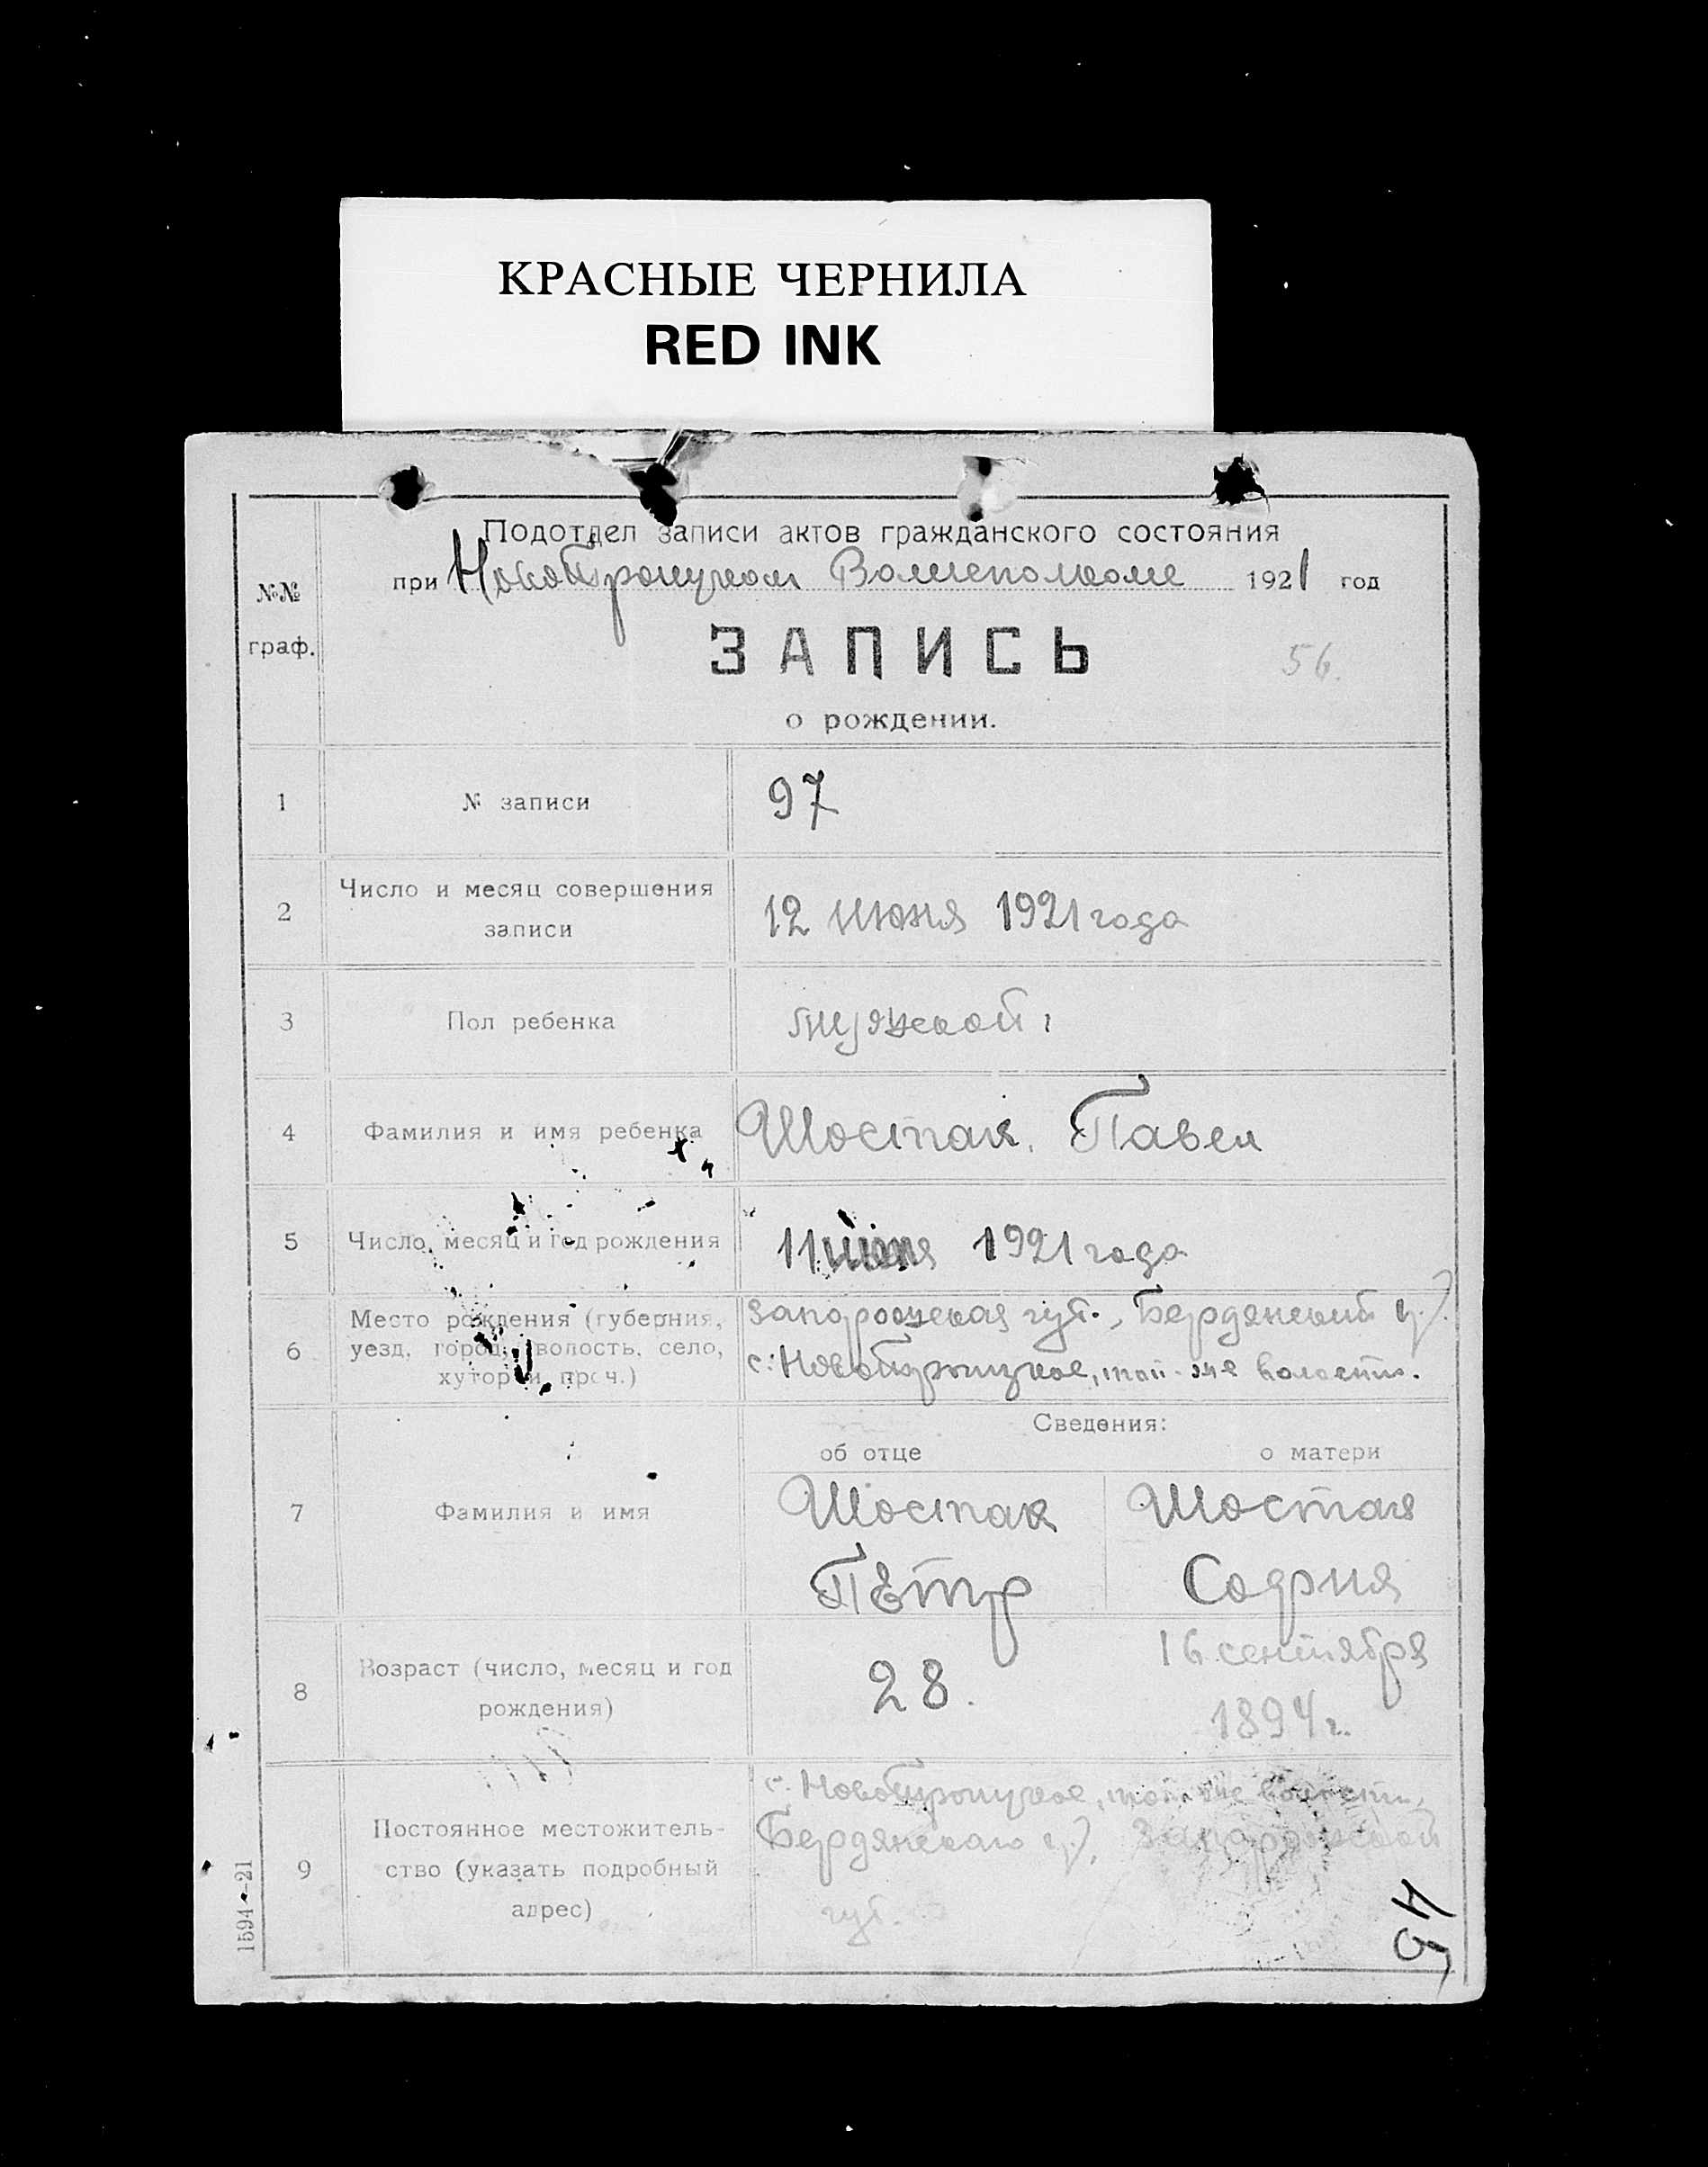 КРАСНЫЕ ЧЕРНИЛА
RED INK
Подотдел записи актов гражданского состояния
при Новотроицком Волисполкоме 1921 год
№№
граф.
ЗАПИСЬ
56.
о рождении.
1 № записи 97
2 Число и месяц совершения
записи 12 июня 1921 года
3 Пол ребенка мужской
4 Фамилия и имя ребенка Шостак, Павел
5 Число, месяц и год рождения 11 июня 1921 года
6 Место рождения (губерния,
уезд, город, волость, село,
хутор и проч.)
Запорожская губ., Бердянский у.)
с. Новотроицкое, той-же волости.
Сведения:
об отце о матери
7 Фамилия и имя
Шостак Шостак
Пётр София
8 Возраст (число, месяц и год
рождения)
28. 16 сентября
1894 г.
9 Постоянное местожитель-
ство (указать подробный
адрес)
с. Новотроицкое, той-же волости,
Бердянского у., Запорожской
губ.
45
1594—21